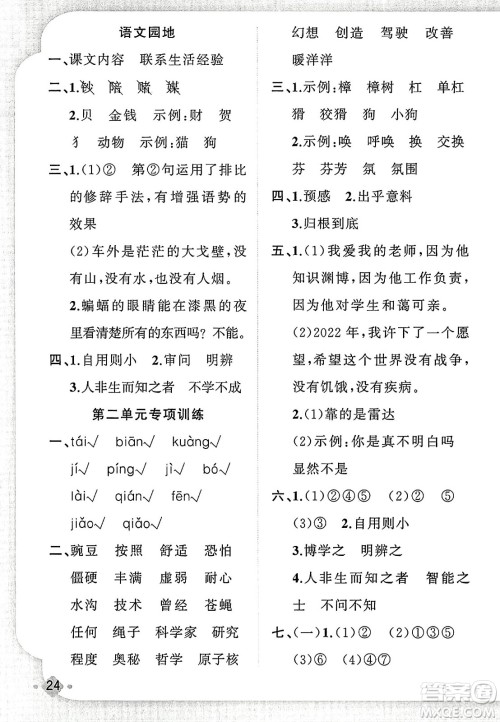 语文园地
一、课文内容 联系生活经验
二、1.鈥 隋 赌 媒
2.贝 金钱 示例:财 贺
犭 动物 示例:猫 狗
三、1.(1)② 第②句运用了排比
的修辞手法,有增强语势的
效果
(2)车外是茫茫的大戈壁,没
有山,没有水,也没有人烟。
2.蝙蝠的眼睛能在漆黑的夜
里看清楚所有的东西吗?不能。
四、1.自用则小 2.审问 明辨
3.人非生而知之者 不学不成
第二单元专项训练
一、tái√ biān√ kuàng√
jí√ píng√ jì√ jìng√
lài√ qián√ fēn√
jiǎo√ qiáo√
二、豌豆 按照 舒适 恐怕
僵硬 丰满 虚弱 耐心
水沟 技术 曾经 苍蝇
任何 绳子 科学家 研究
程度 奥秘 哲学 原子核
24
幻想 创造 驾驶 改善
暖洋洋
三、1.示例:樟 樟树 杠 单杠
猾 狡猾 滑 光滑
2.示例:唤 呼唤 换 交换
芬 芬芳 氛 氛围
四、1.预感 2.出乎意料
3.归根到底
五、1.(1)我爱我的老师,因为他
知识渊博,因为他工作负责,
因为他对学生和蔼可亲。
(2)2022年,我许下了一个愿
望,希望这个世界没有战争,
没有饥饿,没有疾病。
2.(1)靠的是雷达
(2)示例:你真是明白人啊!
显然不是
六、1.(1)②④⑤ (2)② ⑤
(3)③ 2.自用则小
3.博学之 明辨之
4.人非生而知之者 智能之
士 不问不知
七、(一)1.(1)② (2)①
(3)②
答案圈